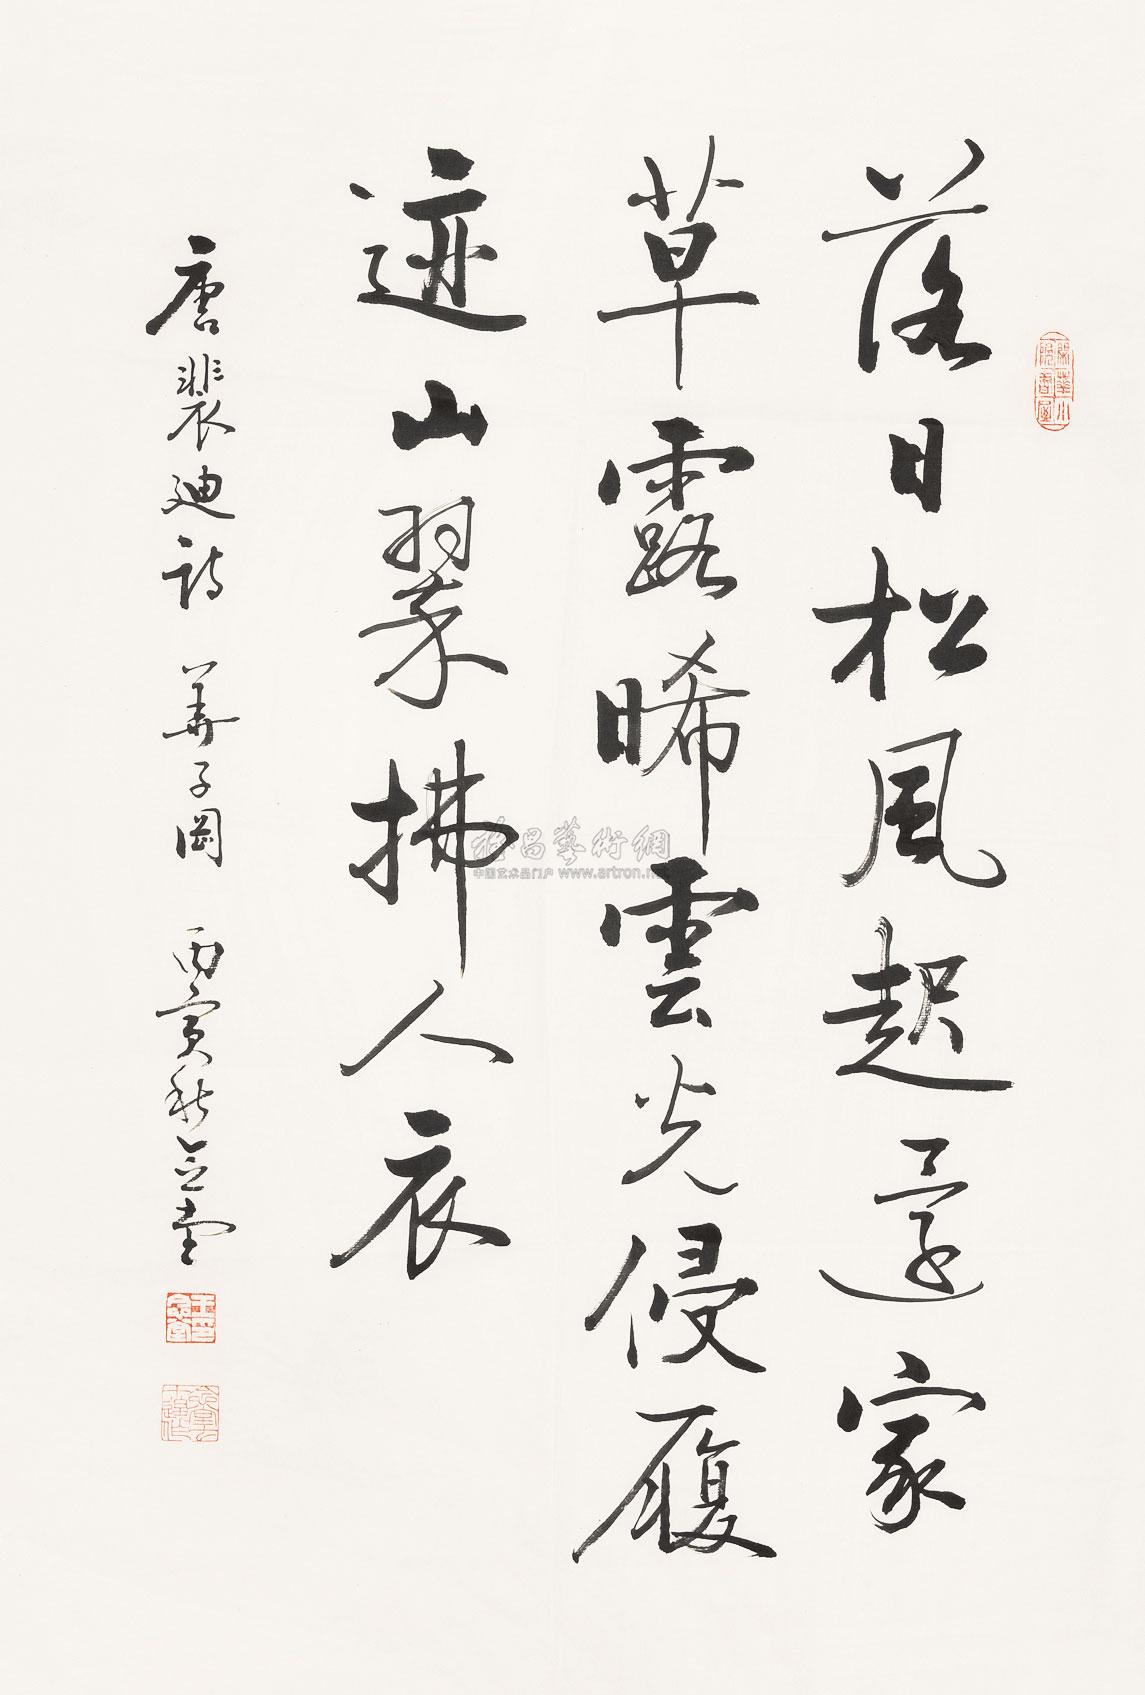 落日松風起還家
草露晞雲光侵履
迹山翠拂人衣
唐裴迪詩 華子岡 丙寅秋企堂
雅昌藝術網
中国艺术品门户 www.artron.net